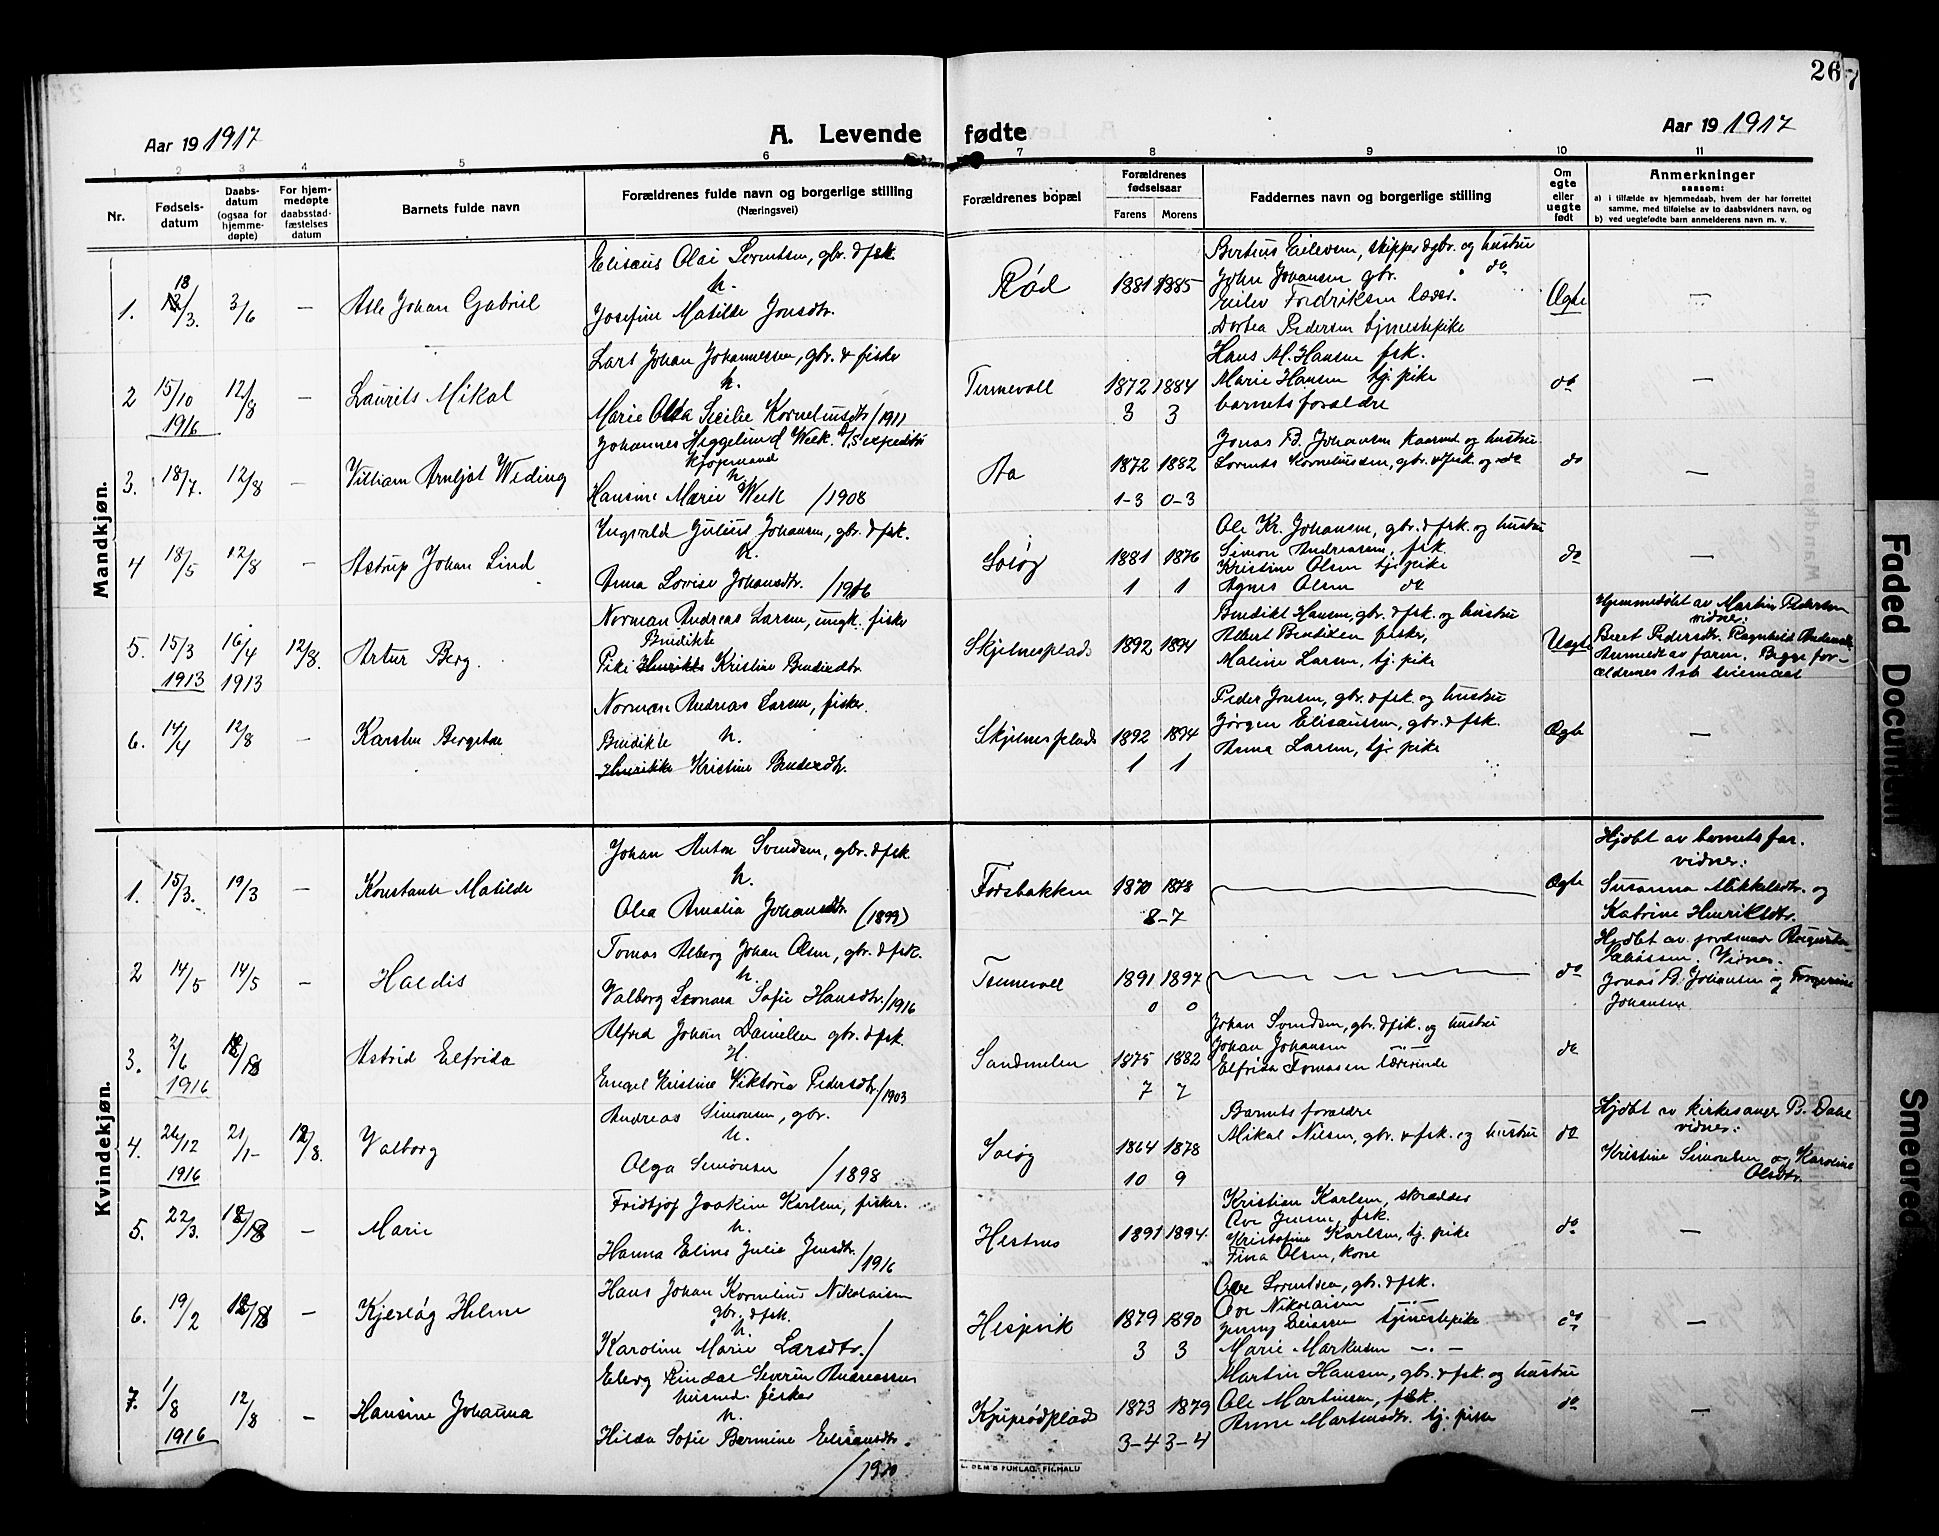 26
7
Aar 19 1917
A. Levende fødte
Aar 19 1917
1 2 3 4 5 6 7 8 9 10 11
Nr.
Fødsels-
datum
Daabs-
datum
(ogsaa for
hjemme-
døpte)
For hjem-
medøpte
daabsstad-
fæstelses
datum
Barnets fulde navn
Forældrenes fulde navn og borgerlige stilling
(Næringsvei)
Forældrenes bopæl
Forældrenes
fødselsaar
Farens Morens
Faddernes navn og borgerlige stilling
Om
egte
eller
uegte
født
Anmerkninger
saasom:
a) i tilfælde av hjemmedaab, hvem der har forrettet
samme, med tilføielse av to daabsvidners navn, og
b) ved uegtefødte barn anmelderens navn m. v.
Mandkjøn.
1. 18/3. 3/6 — Atle Johan Gabriel
Elisæus Olai Lorentsen, gbr. & fsk.
h.
Josefine Matilde Jonsdtr.
Rød 1881 1885
Bertius Eilevsen, skipper & gbr. og hustru
John Johansen gbr. do
Eilev Fredriksen lærer.
Dortea Pedersen tjenestepike
Ægte —
2 15/10 1916 12/8 — Laurits Mikal
Lars Johan Johannessen, gbr. & fisker
h.
Marie Olea Secilie Kornelinsdtr /1911
Tennevoll 1872 1884
3 3
Hans M. Hansen fsk.
Marie Hansen tj. pike
barnets forældre
do —
3. 18/7. 12/8 — William Arnljot Weding
Johannes Heggelund Week. D/S expeditør
kjøpmand
h.
Hansine Marie Week /1908
Aa 1872 1882
1-3 0-3
Jonas B. Johansen kaarmd og hustru
Lorents Korneliussen, gbr. & fsk. og do
do —
4 18/5 12/8 — Astrup Johan Lind
Ingvald Julius Johansen, gbr. & fsk.
h.
Anna Lovise Johansdtr. /1916
Soløy 1881 1876
1 1
Ole Kr. Johansen, gbr. & fsk. og hustru
Simon Andreasen, fsk.
Kristine Olsen tj. pike
Agnes Olsen do
do —
5. 15/3 1913 16/4 1913 12/8. Artur Berg.
Norman Andreas Larsen, ungk. fisker
Bendikte
Pike Henrikke Kristine Bendixdtr.
Skjelnesplads 1892 1894
Bendikt Hansen, gbr. & fsk. og hustru
Albert Bendixen fisker,
Maline Larsen, tj. pike
Uægte
Hjemmedøbt av Martin Pedersen
vidner:
Beret Pedersdtr. Ragnhild
Anmeldt av faren. Begge for-
ældrenes 1ste leiermaal
6. 14/4 12/8 — Karsten Bergeton
Norman Andreas Larsen, fisker.
Bendikte h.
Henrikke Kristine Bendixdtr.
Skjelnesplads 1892 1894
1 1
Peder Jensen, gbr. & fsk. og hustru
Jørgen Elisæussen, gbr. & fsk.
Anna Larsen, tj. pike
Ægte —
Kvindekjøn.
1. 15/3. 19/3 — Konstanse Matilde
Johan Anton Svendsen, gbr. & fsk.
h.
Olea Amalia Johansdtr. (1899)
Forsbakken 1870 1878
8-7
Ægte
Hjdbt av barnets far.
vidner:
Susanna Mikkelsdtr. og
Katrine Henriksdtr.
2 14/5 14/5 — Haldis
Tomas Alberg Johan Olsen, gbr. & fsk.
h.
Valborg Leonora Sofie Hansdtr. /1916
Tennevoll 1891 1897
0 0
do
Hjdbt av jordemor Augusta
Vidner.
Jonas B. Johansen og
Johansen
3. 2/6 1916 12/8 Astrid Elfrida
Alfred Johan Danielsen gbr. & fsk.
H.
Engel Kristine Viktoria Pedersdtr. /1903
Sandmelen 1875 1882
7 7
Johan Svendsen, gbr. & fsk. og hustru
Johan Johansen
Elfrida Tomasen lærerinde
do
4. 26/12 1916 21/1- 12/8. Valborg
Andreas Simonsen, gbr.
h.
Olga Simonsen /1898
Soløy 1864 1878
10 9
Barnets forældre
Mikal Nilsen, gbr. & fsk. og hustru
do
Hjdbt av kirkesanger B. Dahl
vidner:
Kristine Simonsen og Karoline
Olsdtr.
5. 22/3. 12/8 — Marie
Fridtjof Joakim Karlsen, fisker.
h.
Hanna Eline Julie Jensdtr. /1916
Hestnes 1891 1894.
Kristian Karlsen, skrædder
Ove Jensen, fsk.
Kristofine Karlsen, tj. pike
Fina Olsen, kone
do —
6. 19/2 12/8 — Kjerløg Helene
Hans Johan Kornelius Nikolaisen
gbr. & fsk.
h.
Karoline Marie Larsdtr. /
Hesjevik 1879 1890
3 3
Ove Lorentsen, gbr. & fsk.
Ove Nikolaisen
Jenny tjenestepike
Marie Markusen — " —
do —
7. 1/8 1916 12/8 — Hansine Johanna
Elberg Peindal Severin Andreassen
husmd. fisker
h.
Hilda Sofie Bermine Elisæusdtr.
/1910
Kjeiprødplads 1873 1879
3-4 3-4
Martin Hansen, gbr. & fsk. og hustru
Ole Martinsen, fsk.
Anne Martinsdtr. tj. pike
do —
Faded Document
Smeared